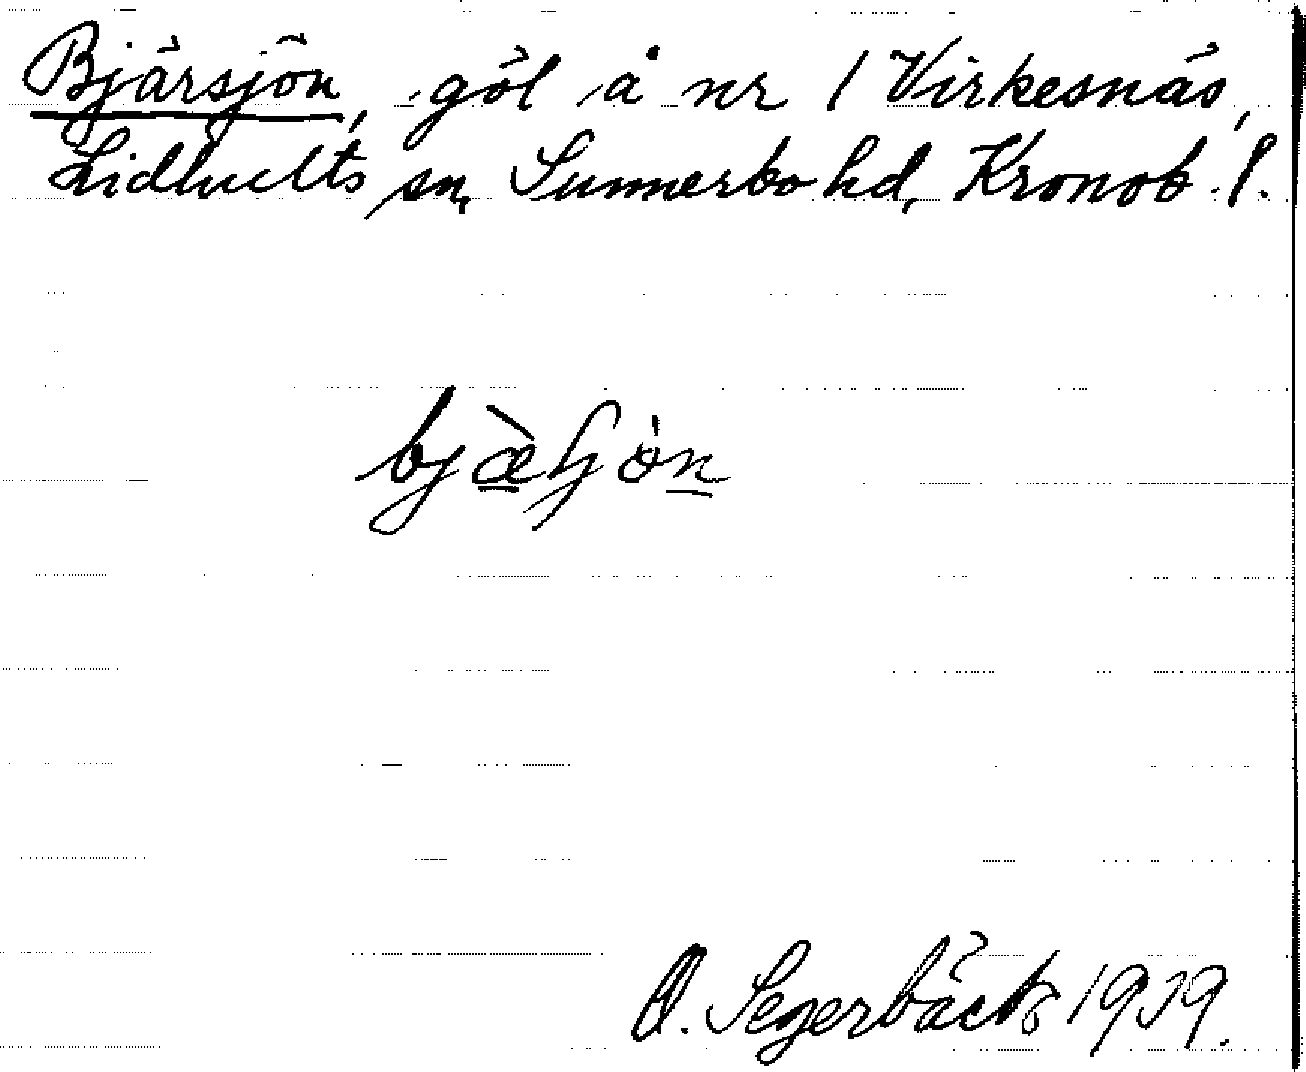 Bjärsjön, göl å nr 1 Virkesnäs,
Lidhults sn, Sunnerbo hd, Kronob. l.
O. Segerbäck 1939.